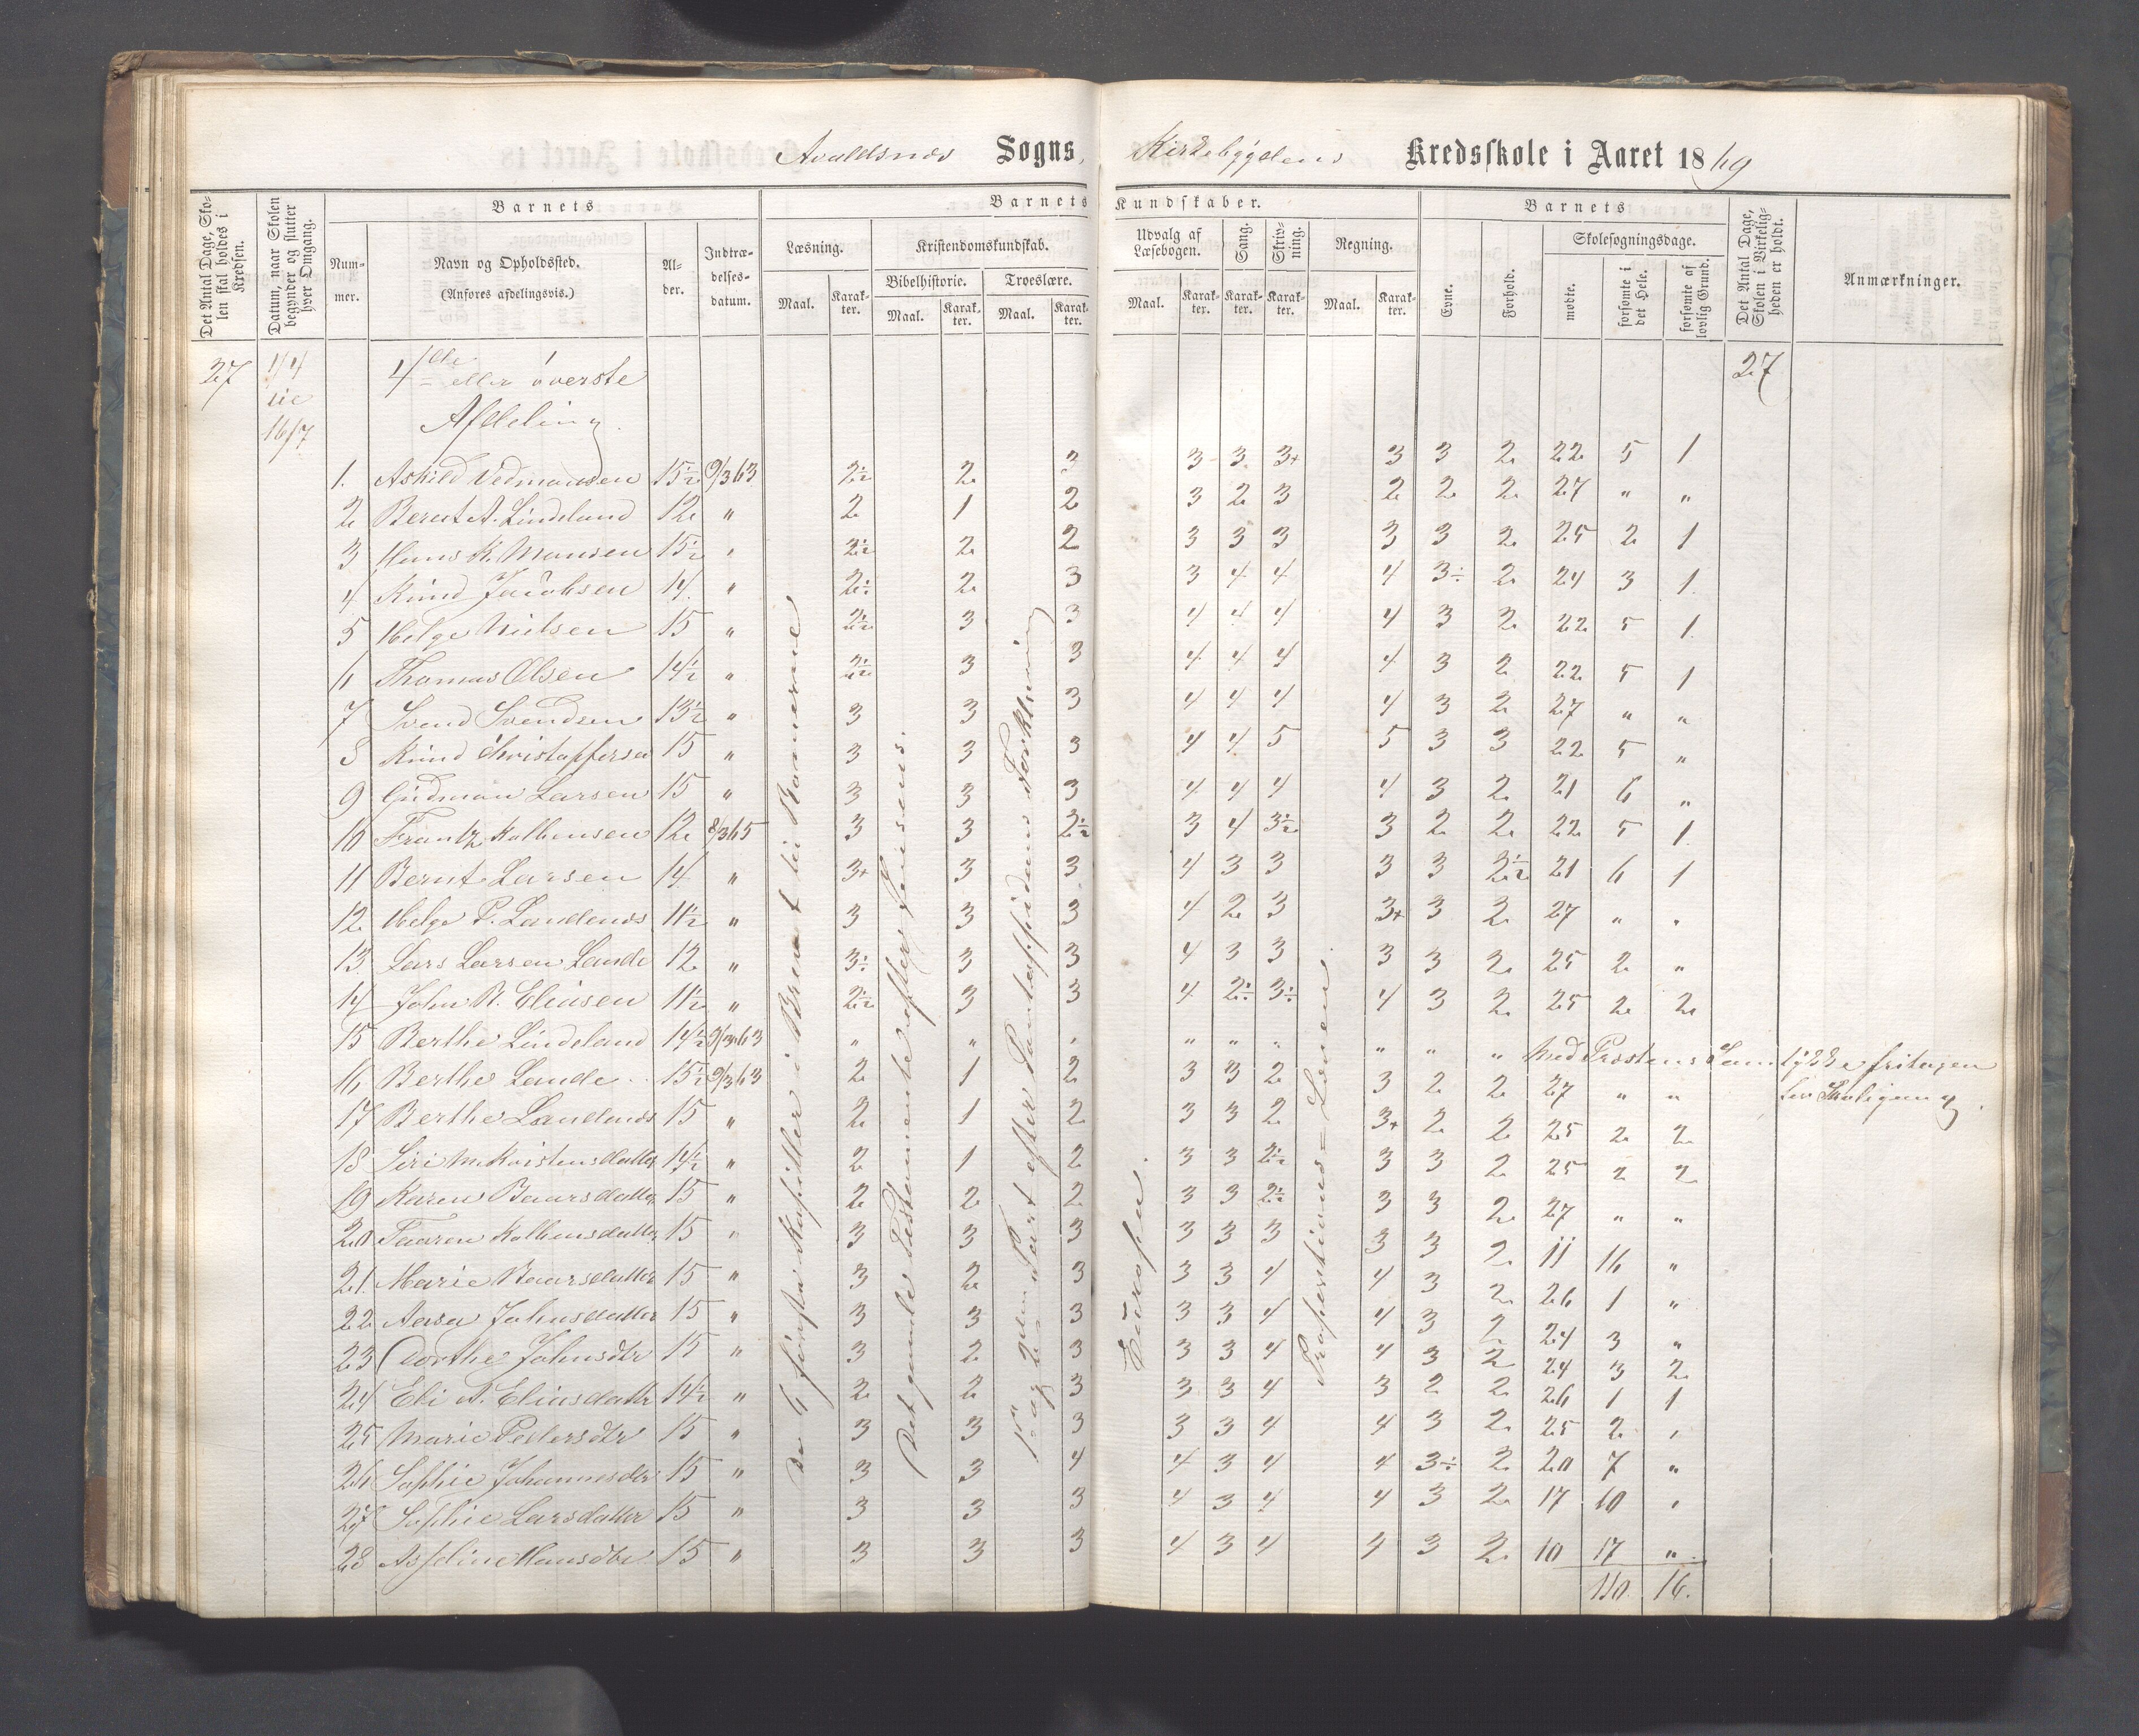 Avaldsnes Sogns, Kirkebygdens Kredsskole i Aaret 1869
Det Antal Dage, Skolen skal holdes i Kredsen.
Datum, naar Skolen begynder og slutter hver Omgang.
Barnets
Nummer.
Navn og Opholdssted.
(Anføres afdelingsvis.)
Alder.
Indtrædelsesdatum.
Barnets Kundskaber.
Læsning.
Maal. Karakter.
Kristendomskundskab.
Bibelhistorie. Troeslære.
Maal. Karakter. Maal. Karakter.
Udvalg af Læsebogen.
Maal. Karakter.
Sang. Karakter.
Skrivning. Karakter.
Regning.
Maal. Karakter.
Barnets
Evne. Forhold.
Skolesøgningsdage.
mødte. forsømte i det Hele. forsømte af lovlig Grund.
Det Antal Dage, Skolen i Virkeligheden er holdt.
Anmærkninger.
27 1/4 4de eller øverste 27
til Afdeling.
16/7
1. Askild Vedmandsen 15½ 9/3 63 2½ 2 3 3 3 3+ 3 3 2 22 5 1
2 Bernt A. Lindeland 12 " 2 1 2 3 2 3 2 2 2 27 " "
3 Hans K. Monsen 15½ " 2½ 2 2 3 3 3 3 3 2 25 2 1
4 Knud Jacobsen 14 " 2÷ 2 3 3 4 4 4 3÷ 2 24 3 1
5 Helge Nielsen 15 " 2½ 3 3 4 4 4 4 3 2 22 5 1
6 Thomas Olsen 14½ " 2½ 3 3 4 4 4 4 3 2 22 5 1
7 Svend Svendsen 13½ " 3 3 3 4 4 4 4 3 2 27 " "
8 Knud Christophersen 15 " 3 3 3 4 4 5 5 3 3 22 5 "
9 Gudmun Larsen 15 " 3 3 3 4 4 4 4 3 2 21 6 "
10 Frantz Kolbensen 12 8/3 65 3 3 2½ 3 4 3½ 3 2 2 22 5 1
11 Bernt Larsen 14 " 3+ 3 3 4 3 3 3 3 2½ 21 6 1
12 Helge P. Landenes 11½ " 3 3 3 4 2 3 3+ 3 2 27 " "
13. Lars Larsen Lande 12 " 3÷ 3 3 4 3 3 3 3 2 25 2 "
14 John B. Eliasen 11½ " 2½ 3 3 4 2÷ 3÷ 4 3 2 25 2 2
15 Berthe Lindeland 14½ 9/3 63 " " " " " " " " " Med Præstens Samtykke fritagen
16 Berthe Lande 15½ 9/3 63 2 1 2 3 3 2 3 2 2 27 " "
17 Berthe Landenes 15 " 2 1 2 3 3 2 3+ 2 2 25 2 2
18 Siri M. Kristensdatter 14½ " 2 1 2 3 3 2½ 3 3 2 25 2 2
19 Karen Baarsdatter 15 " 2 2 2 3 3 2½ 3 3 2 27 " "
20 Taaren Kolbensdatter 15 " 3 3 3 3 3 3 3 3 2 11 16 "
21 Marie Baarsdatter 15 " 3 2 3 3 3 4 4 3 2 26 1 "
22 Aasa Johnsdatter 15 " 3 3 3 3 3 4 4 3 2 24 3 "
23 Dorthe Johnsdtr 15 " 3 2 3 3 3 4 4 3 2 24 3 2
24 Eli A. Eliasdattr 14½ " 2 2 3 3 3 4 3 2 2 26 1 1
25 Marie Pedersdtr 15 " 3 3 3 3 3 4 4 3 2 25 2 "
26 Sophie Johannesdtr 15 " 3 3 4 4 3 4 4 3÷ 2 20 7 "
27 Sophie Larsdatter 15 " 3 3 3 4 3 4 4 3 2 17 10 "
28 Asseline Hansdtr 15 " 3 3 3 4 3 4 4 3 2 10 17 "
110. 16.
De 6 første Kapitler i Brevet til Romerne
Det gamle Testamente efter
1ste og 2den Part efter Pontoppidans Forklaring
Europa.
Proportions-Læren.